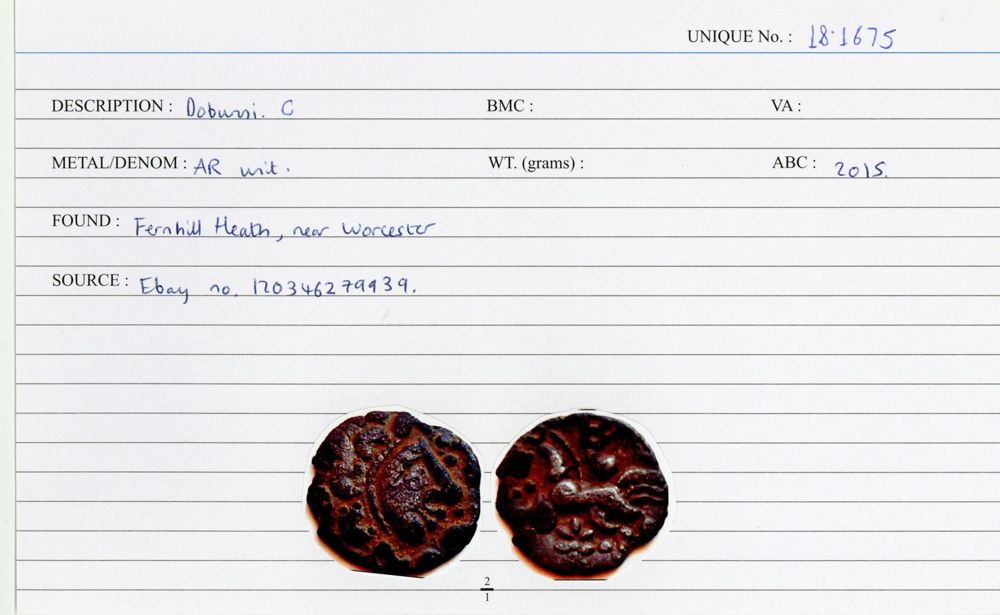 UNIQUE No. : 18.1675
DESCRIPTION : Dobunni. C BMC : VA :
METAL/DENOM : AR unit. WT. (grams) : ABC : 2015.
FOUND : Fernhill Heath, near Worcester
SOURCE : Ebay no. 120346279939.
2
1